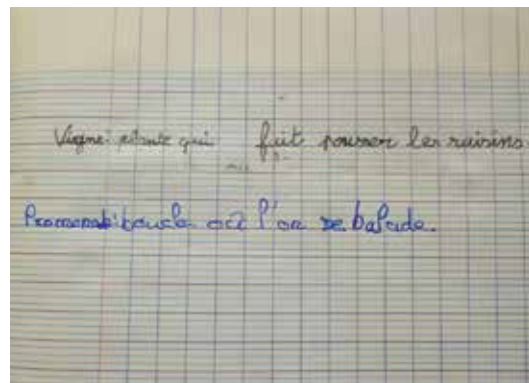 Vigne: plante qui fait pousser les raisins.
Promenade: boucle où l'on se balade.